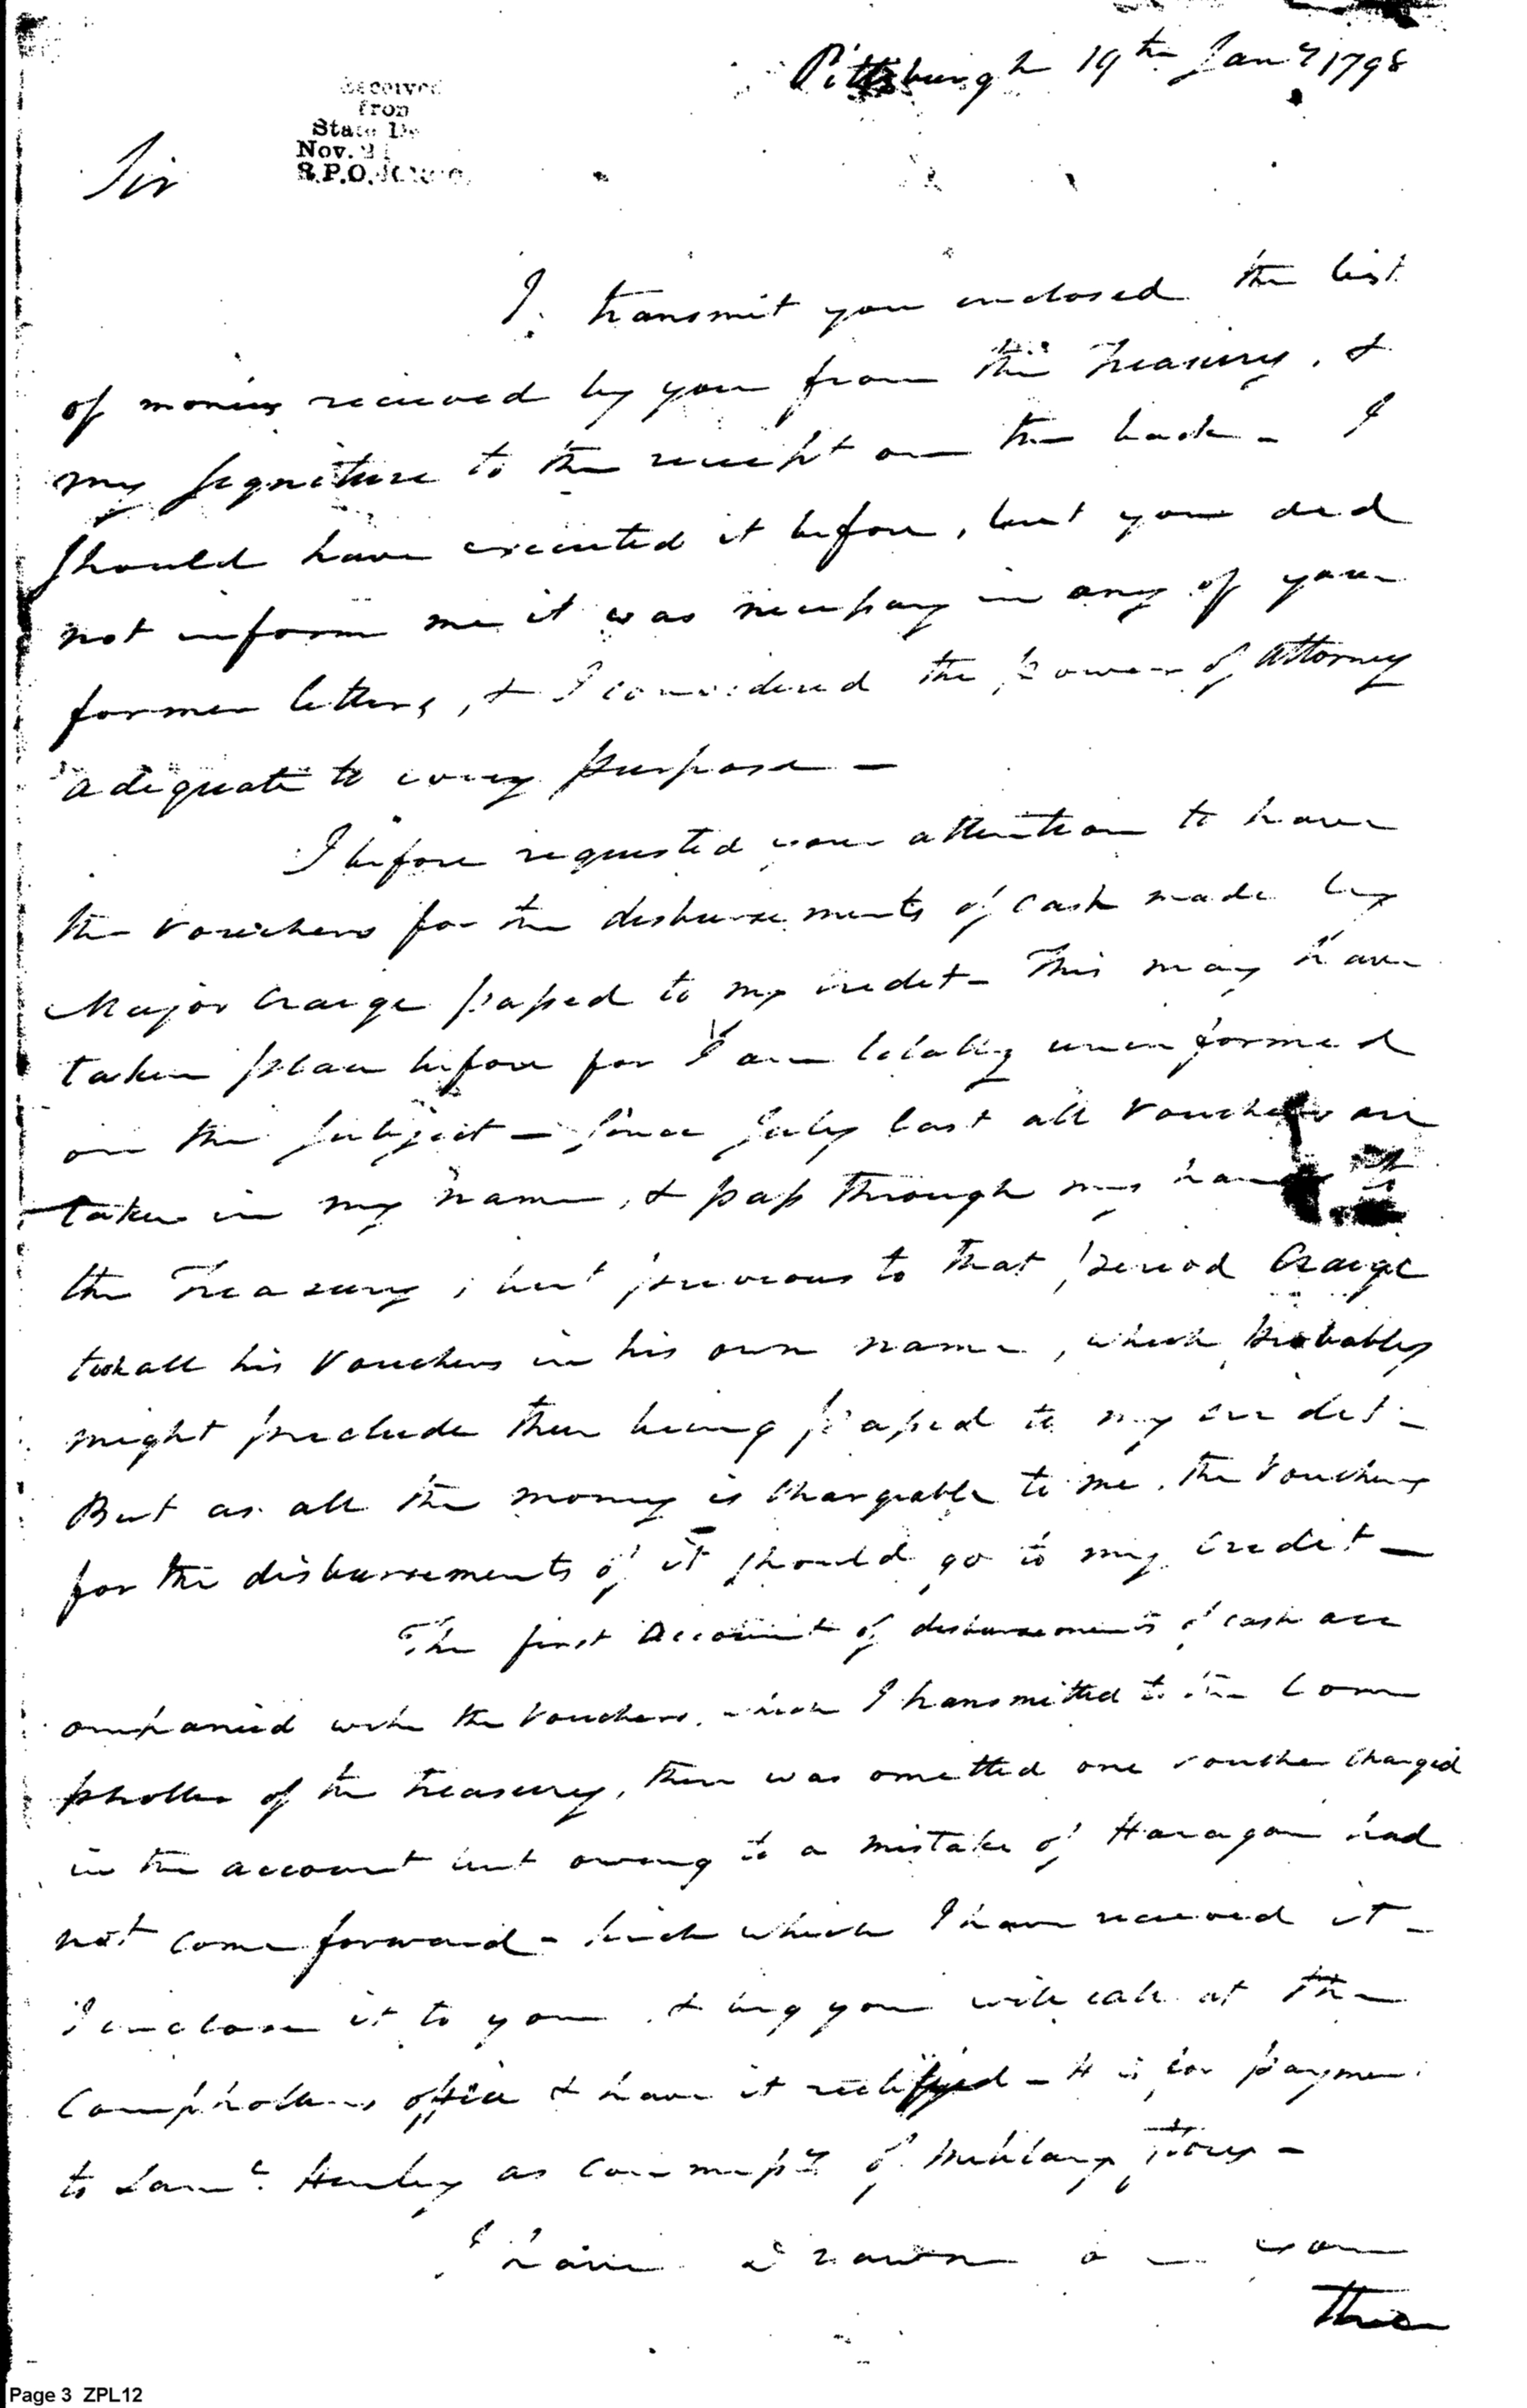 Pittsburgh 19th Jany 1798
Received
from
State De
Nov. 21
R.P.O.
Sir
I transmit you enclosed the list
of monies recieved by you from the Treasury, &
my signiture to the receipt on the back – I
should have executed it before, but you did
not inform me it was necessary in any of your
former letters, & I considered the power of attorney
adequate to every purpose –
I before requested your attention to have
the vouchers for the disbursements of cash made by
Major Craige passed to my credit – This may have
taken place before for I am totally uninformed
on the subject – Since July last all vouchers are
taken in my name, & pass through my hands to
the Treasury, but previous to that period Craige
took all his vouchers in his own name, which probably
might preclude their being passed to my credit –
But as all the money is chargeable to me, the vouchers
for the disbursements of it should go to my credit –
The first account of disbursements of cash acc
ompanied with the vouchers, which I transmitted to the Com
ptroller of the treasury, there was omitted one voucher charged
in the account but owing to a mistake of Haragan had
not come forward – since which I have received it –
I inclose it to you, & beg you will call at the
Comptrollers office & have it rectifyed – It is for payment
to Saml Henley as Commissy of Military Stores –
I have drawn on you
three
Page 3 ZPL12